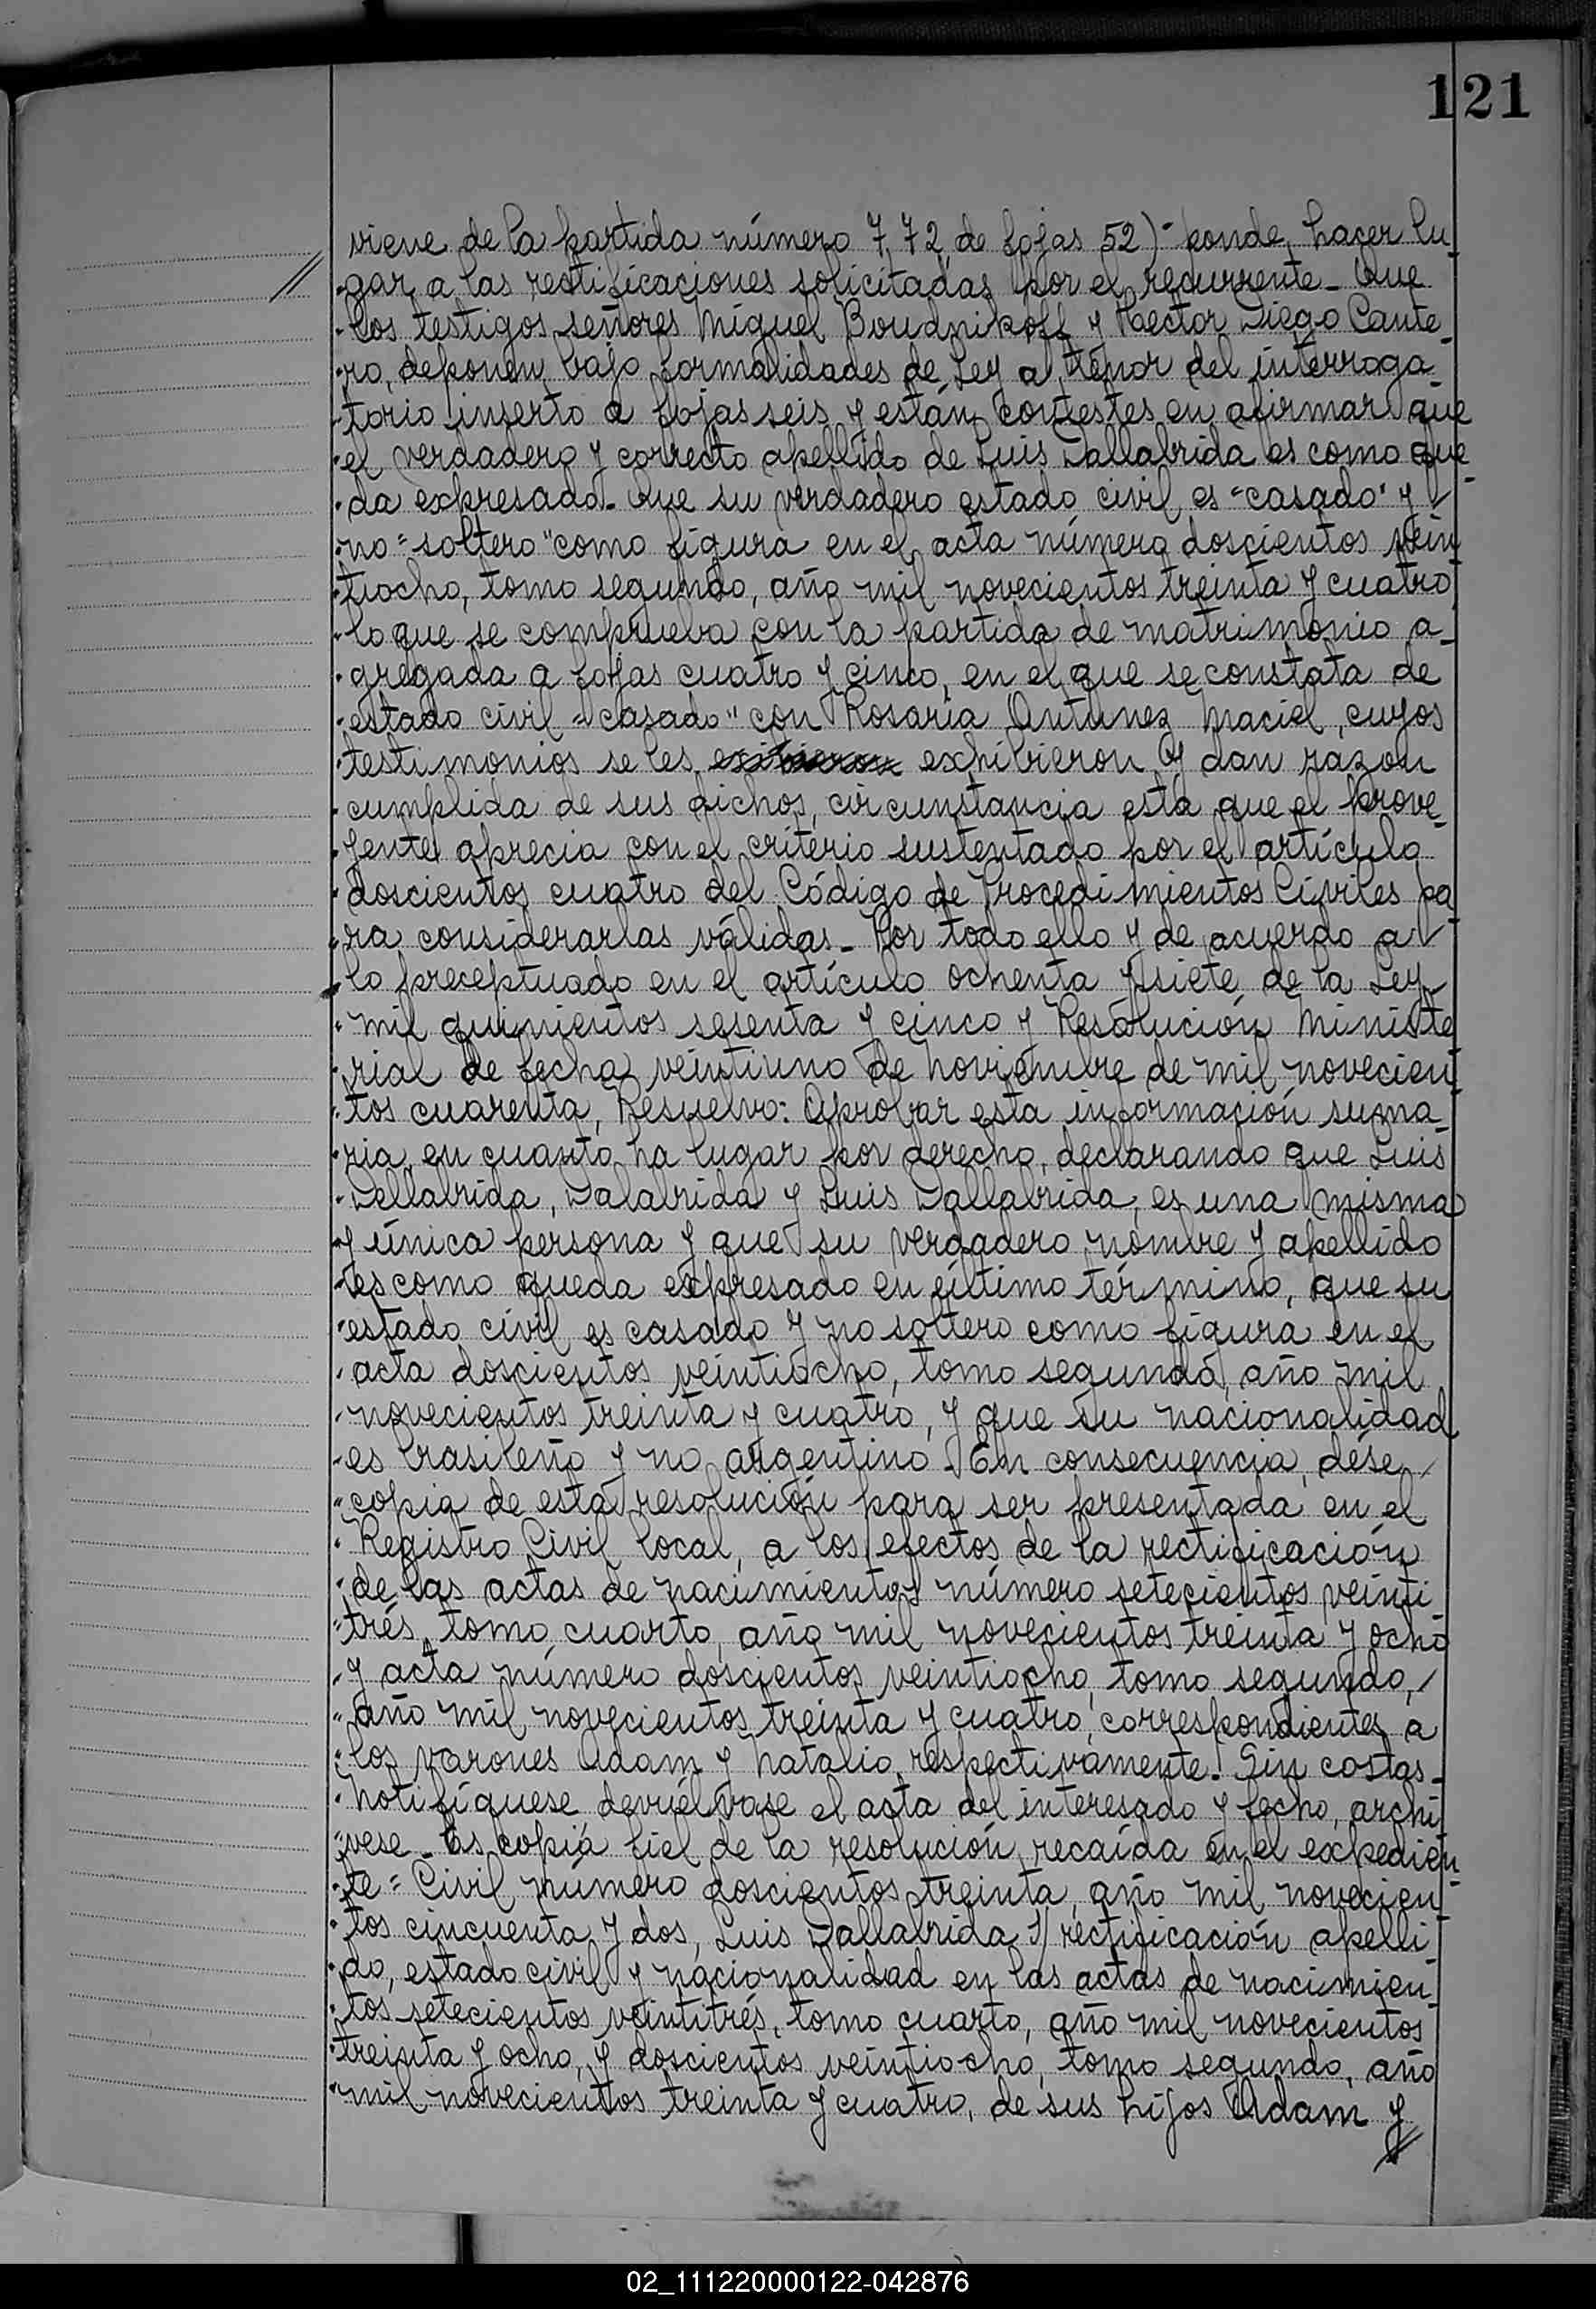 121
viene de la partida número 772, de fojas 52)- ponde, hacer lu-
gar, a las rectificaciones solicitadas por el recurrente - Que
los testigos señores Miguel Boudnikoff y Hector Diego Cante-
ro, deponen bajo formalidades de Ley al tenor del interroga-
torio inserto a fojas seis y están contestes en afirmar que
el verdadero y correcto apellido de Luis Dallabrida es como que-
da expresado. Que su verdadero estado civil es "casado" y
no "soltero" como figura en el acta número doscientos vein
tiocho, tomo segundo, año mil novecientos treinta y cuatro,
lo que se comprueba con la partida de matrimonio a-
gregada a fojas cuatro y cinco, en el que se constata de
estado civil "casado" con Rosaria Antunez Maciel, cuyos
testimonios se les exhibieron y dan razon
cumplida de sus dichos, circunstancia esta que el prove-
yente aprecia con el criterio sustentado por el artículo
doscientos cuatro del Código de Procedimientos Civiles pa
ra considerarlas válidas - Por todo ello y de acuerdo a
lo preceptuado en el artículo ochenta y siete de la Ley
mil quinientos sesenta y cinco y Resolución Ministe
rial de fecha veintiuno de noviembre de mil novecien
tos cuarenta, Resuelvo: Aprobar esta información suma-
ria, en cuanto ha lugar por derecho, declarando que Luis
Dellabrida, Dalabrida y Luis Dallabrida, es una misma
y única persona y que su verdadero nombre y apellido
es como queda expresado en último término, que su
estado civil es casado y no soltero como figura en el
acta doscientos veintiocho, tomo segundo, año mil
novecientos treinta y cuatro, y que su nacionalidad
es brasileño y no argentino. En consecuencia, dése
copia de esta resolución para ser presentada en el
Registro Civil local, a los efectos de la rectificación
de las actas de nacimientos número setecientos veinti-
trés, tomo cuarto, año mil novecientos treinta y ocho
y acta número doscientos veintiocho, tomo segundo,
año mil novecientos treinta y cuatro, correspondientes a
los varones Adam y Natalio, respectivamente. Sin costas -
Notifíquese, devuélvase el acta del interesado y fecho, archí
vese - Es copia fiel de la resolución recaída en el expedien-
te = Civil número doscientos treinta, año mil novecien
tos cincuenta y dos, Luis Dallabrida S/ rectificación apelli-
do, estado civil y nacionalidad en las actas de nacimien-
tos setecientos veintitrés, tomo cuarto, año mil novecientos
treinta y ocho, y doscientos veintiocho, tomo segundo, año
mil novecientos treinta y cuatro, de sus hijos Adam y
02_111220000122-042876